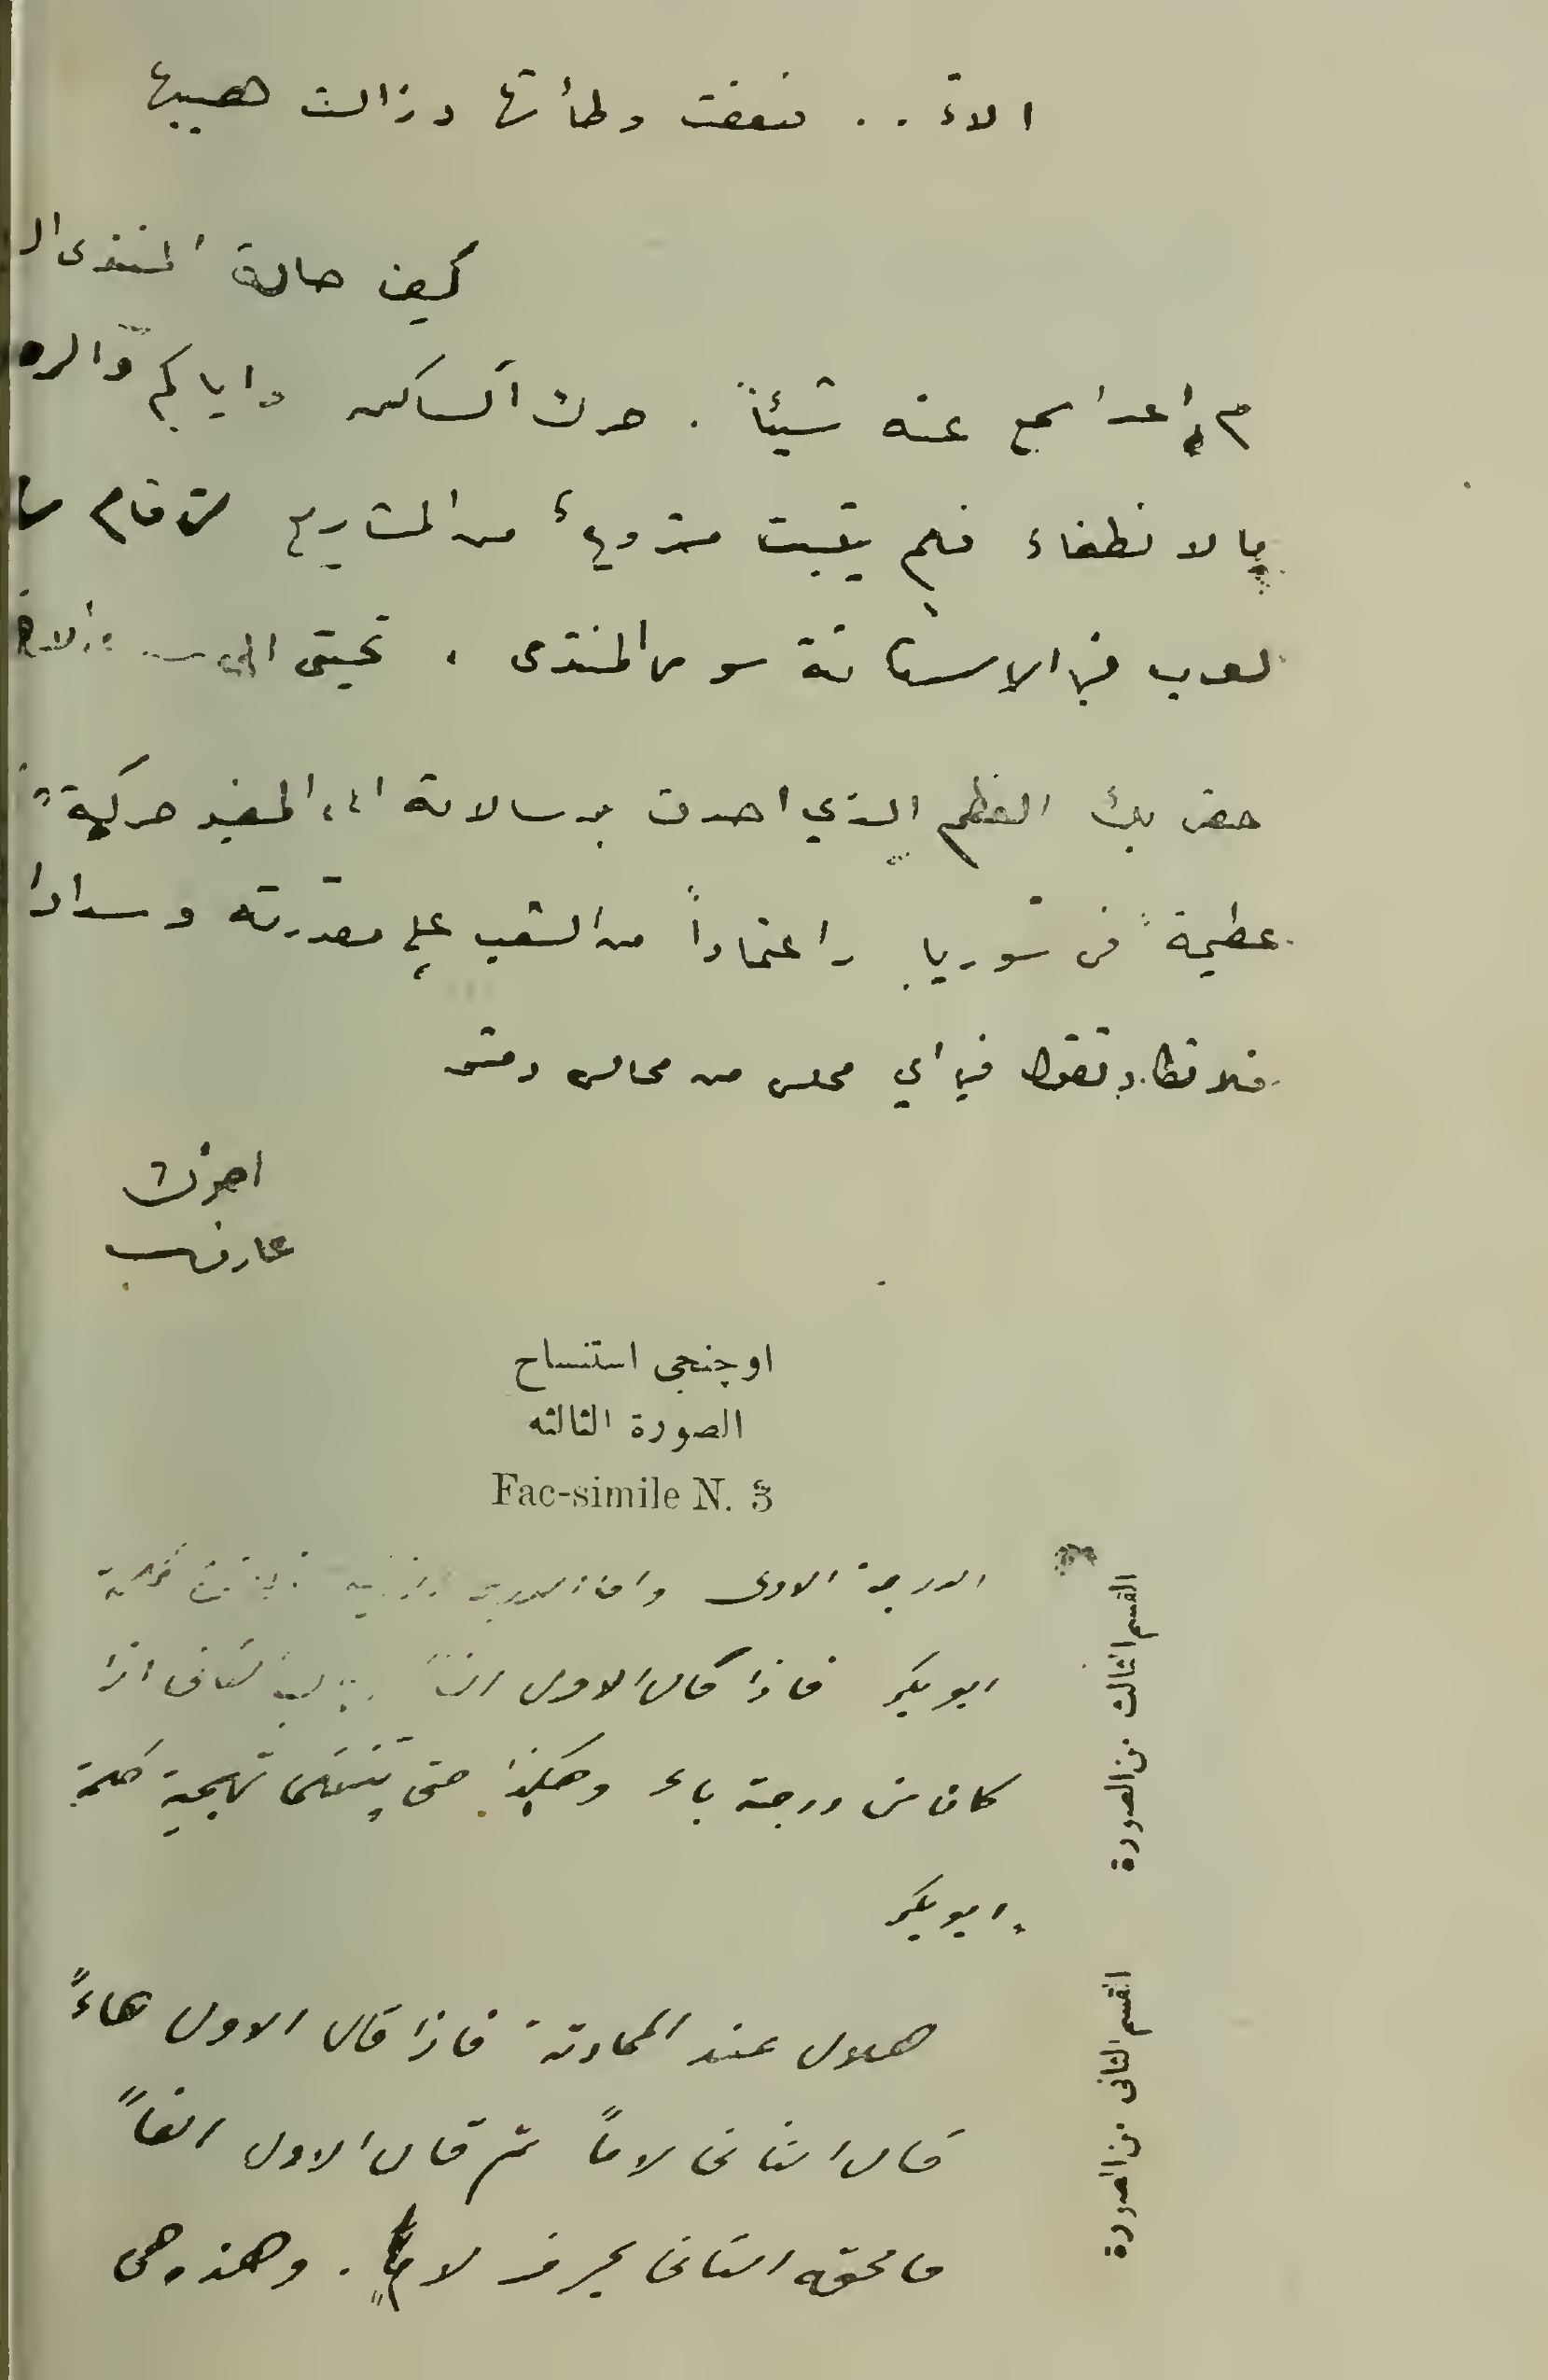 الآن . . ضعفت وطأتها وزالت هيبتها
كيف حالة المنتدى ال
لم اعد اسمع عنه شيئاً . حرك الساكن واياكم والر
بالانطفاء فلم يثبت مشروع من المشاريع التي قام بها
العرب في الاستانة سوى المنتدى . تحيتي الى
حقي بك العظم الذي احدث برسالاته الى المفيد حركة
عظيمة في سوريا واعتماداً من الشعب على مقدرته وسداد
فلا تكاد تقول في اي مجلس من مجالس دمشق
اخوك
عارف
اوچنجی استنساخ
الصورة الثالثه
Fac-simile N. 3
القسم الثالث من الصورة
الدرجة الاولى واما الدرجة الثانية
ابو بكر فاذا قال الاول الفاً الثاني اذا
كان من درجة باء وهكذا حتى تنتهي تهجية كلمة
ابو بكر
القسم الثانى من الصورة
هلال عند المحادثة فاذا قال الاول هاءً
قال الثاني لاماً ثم قال الاول الفاً
فالحقه الثاني بحرف لام . وهذه هي